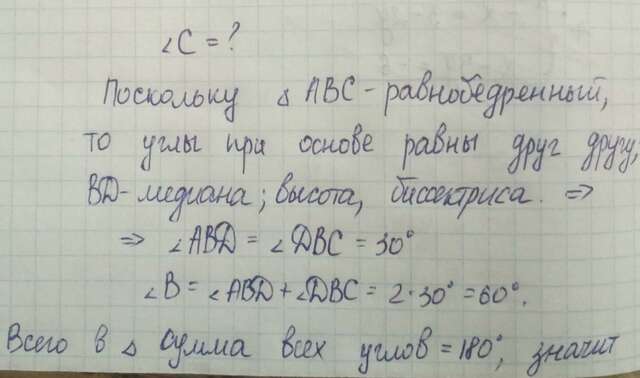 ∠C = ?
Поскольку Δ ABC - равнобедренный,
то углы при основе равны друг другу,
BD - медиана; высота, биссектриса. ⇒
⇒ ∠ABD = ∠DBC = 30°
∠B = ∠ABD + ∠DBC = 2·30° = 60°.
Всего в Δ сумма всех углов = 180°, значит